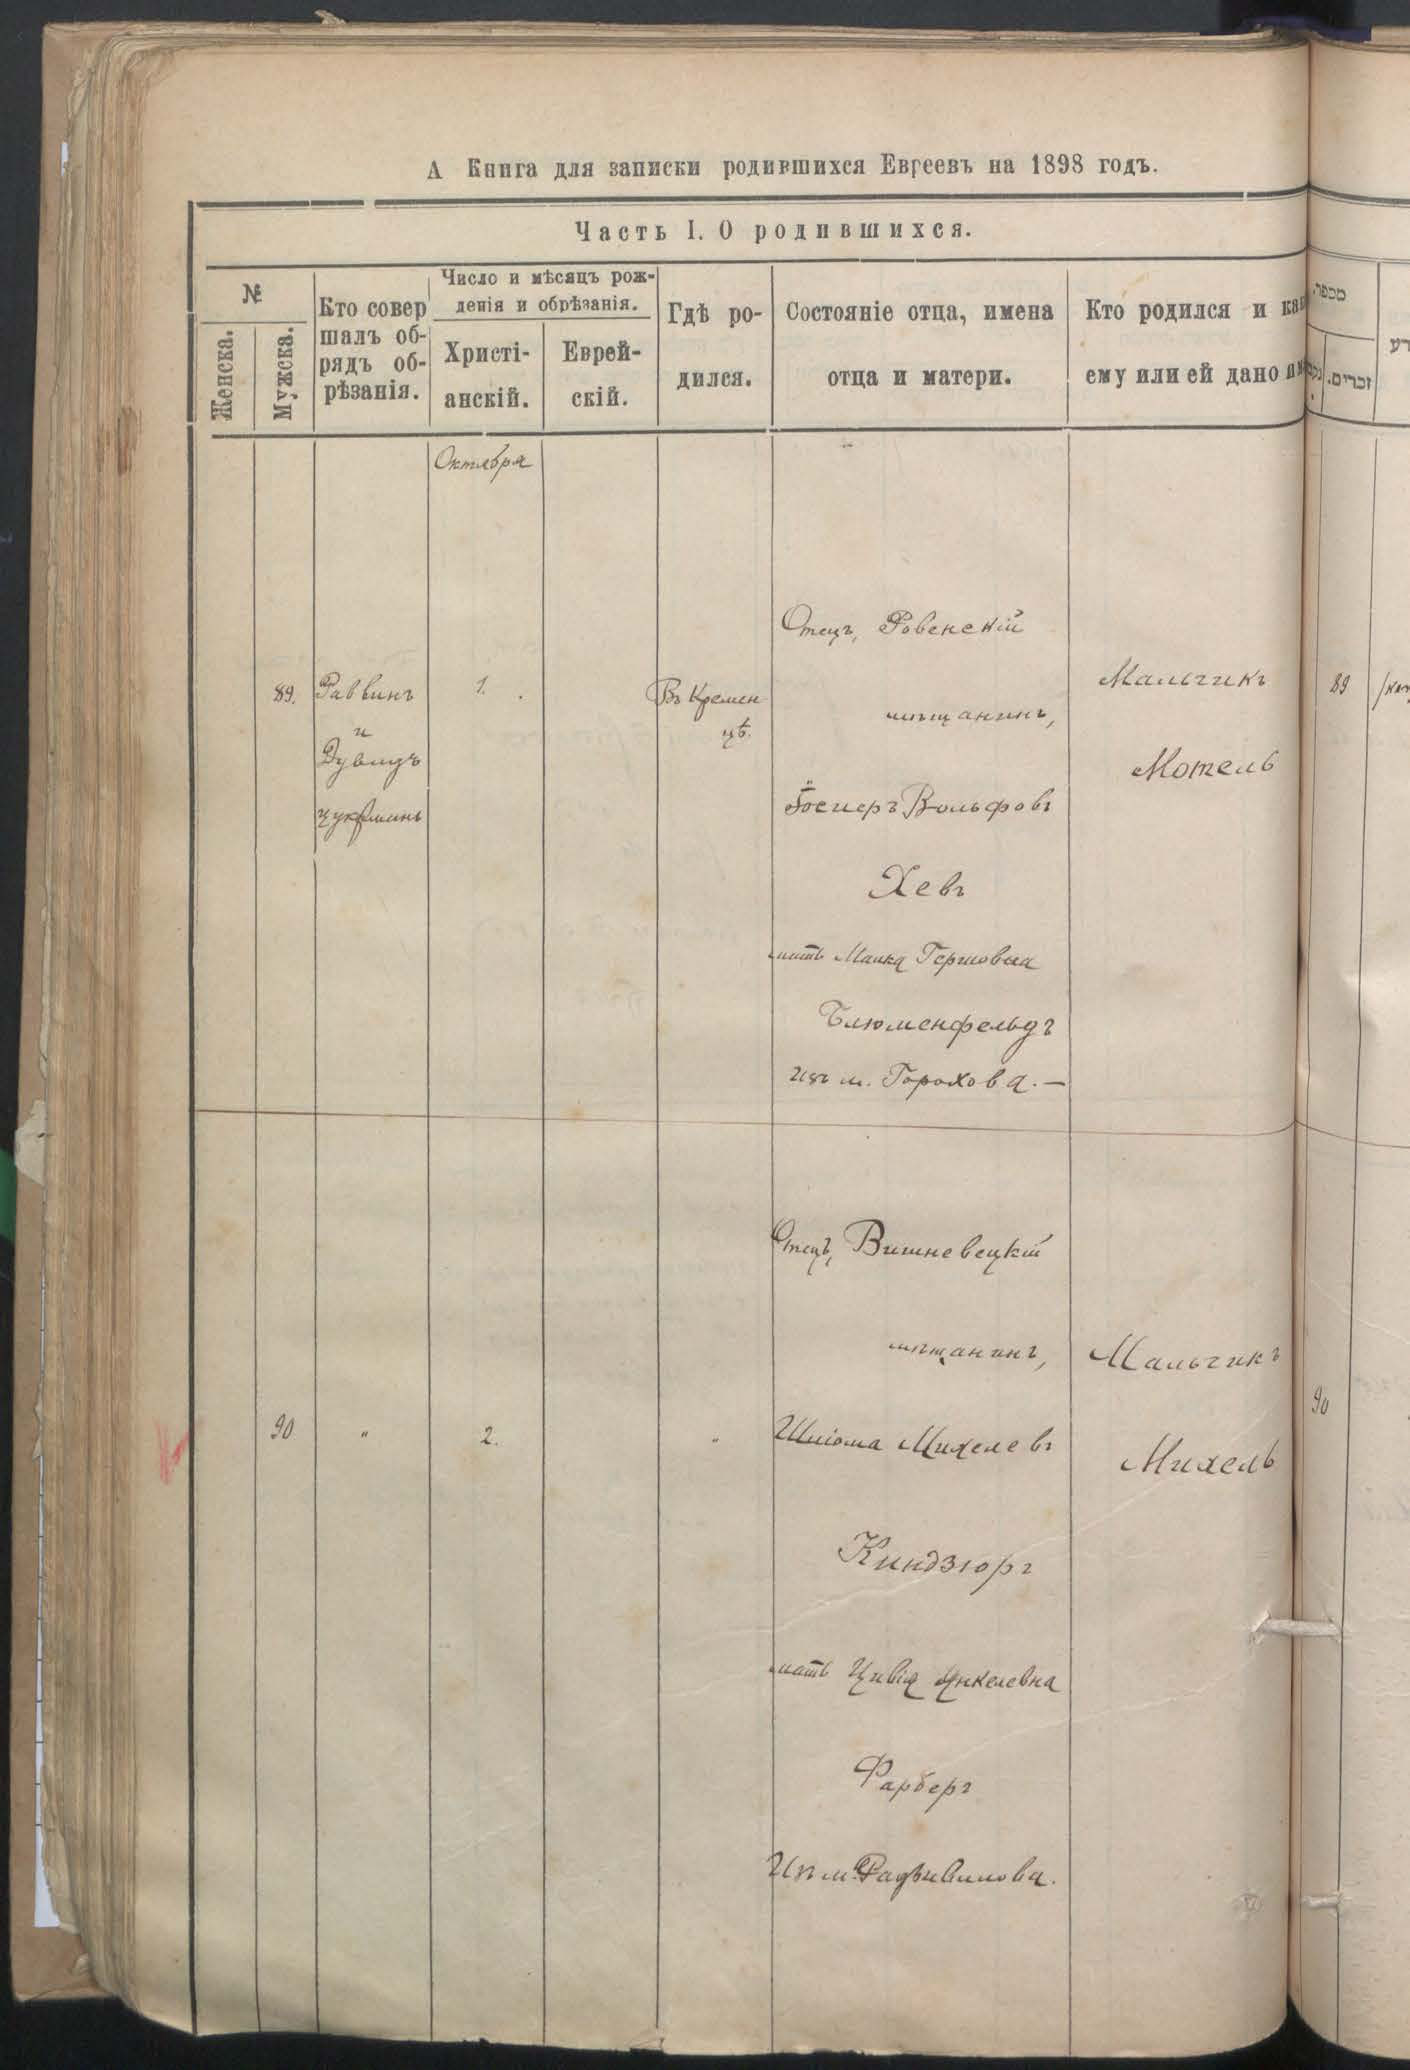 А Книга для записки родившихся Евреевъ на 1898 годъ.
Часть I. О родившихся.
№
Женска.
Мужска.
Кто совер
шалъ об-
рядъ об-
рѣзанія.
Число и мѣсяцъ рож-
денія и обрѣзанія.
Христі-
анскій.
Еврей-
скій.
Гдѣ ро-
дился.
Состояніе отца, имена
отца и матери.
Кто родился и как
ему или ей дано
מספר.
זכרים.
Октября
89.
Раввинъ
и
Дувидъ
1.
Въ Кремен
цѣ.
Отецъ, Ровенскій
мѣщанинъ,
Вольфовъ
Хевъ
мать Малка Гершовна
Блюменфельдъ
изъ м. Горохова. —
Мальчикъ
Мотель
89
90
"
2.
"
Отецъ, Вишневецкій
мѣщанинъ,
Шліома Михелевъ
Киндзюръ
мать Цивія Янкелевна
Фарберъ
Изъ м. Радзивилова.
Мальчикъ
Михель
90